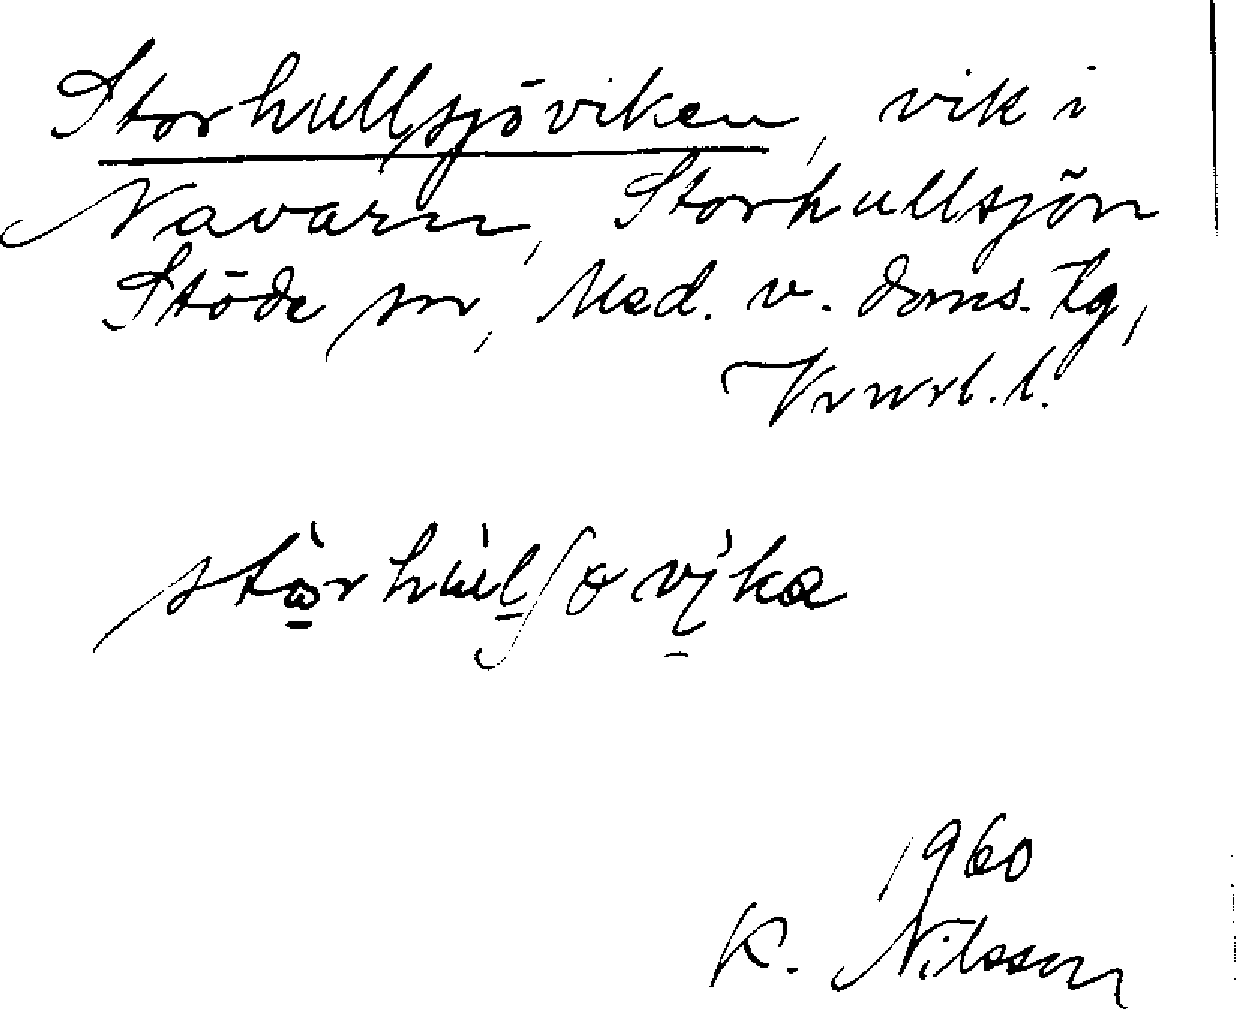 Storhullsjöviken, vik i
Navarn, Storhullsjön
Stöde sn, Med. v. doms. tg,
Vrnrl. l.
1960
K. Nilsson